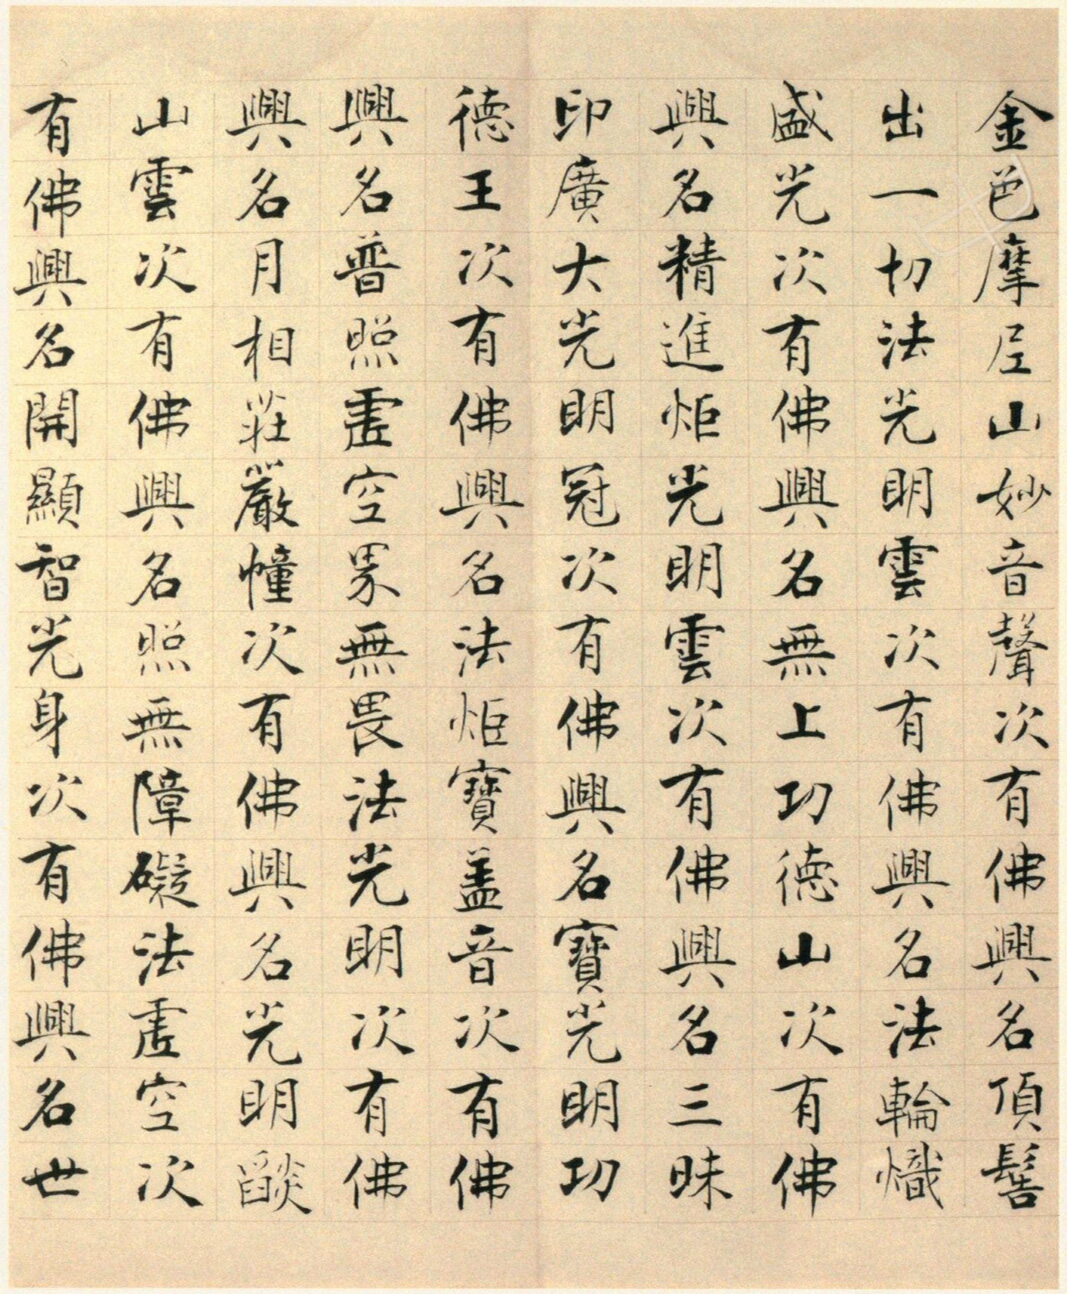 金色摩尼山妙音聲次有佛興名頂髻
出一切法光明雲次有佛興名法輪熾
盛光次有佛興名無上功德山次有佛
興名精進炬光明雲次有佛興名三昧
印廣大光明冠次有佛興名寶光明功
德王次有佛興名法炬寶盖音次有佛
興名普照虛空界無畏法光明次有佛
興名月相莊嚴幢次有佛興名光明燄
山雲次有佛興名照無障礙法虛空次
有佛興名開顯智光身次有佛興名世